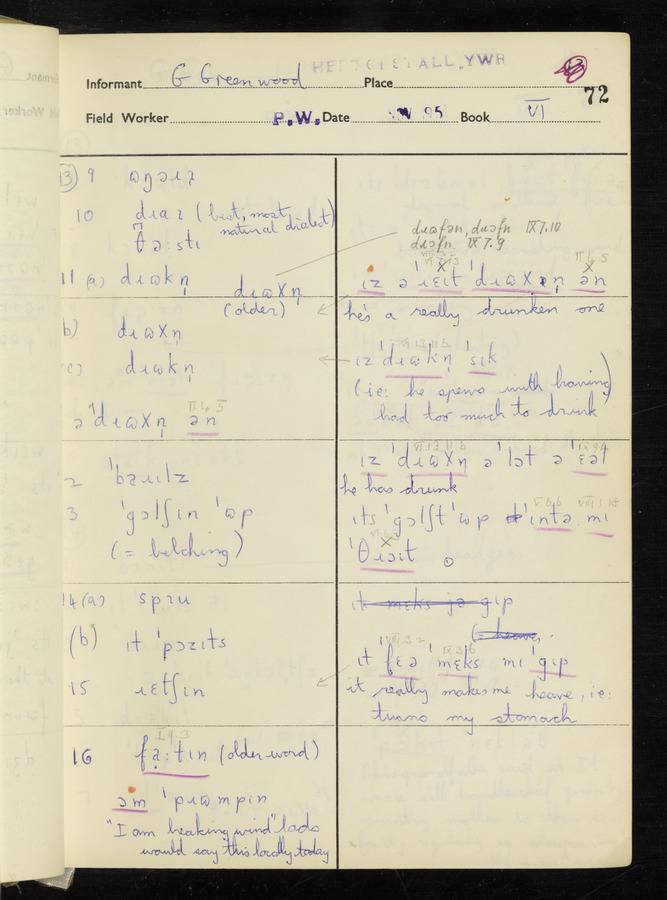 HEPTONSTALL, YWR
Informant G Greenwood Place
72
Field Worker P.W. Date NOV 95 Book VI
(13) 9 ɷŋɔɪɹ̩
10 dɹaɪ (best, most natural dialect)
θə:stɪ
11 (a) dɹɷkn̩ dɹɷχn̩
(older)
b) dɹɷχn̩
c) dɹɷkn̩
ə 'dɹɷχn̩ ən
VI 4 5
2 'bɛɯɪlz
3 'gɔlʃɪn 'ɷp
(= belching)
14 (a) spɛɯ
(b) ɪt 'pɔɛɪts
15 ɹɛtʃɪn
16 fa̠:tɪn (older word)
əm 'pɹɷmpɪn
"I am breaking wind" lads
would say this locally today
dɹɷfən, dɹɷfn IX 7.10
dɹɔfn IX 7.9
ɪz ə 'ɹɛɪt 'dɹɷχn̩ ən
he's a really drunken one
ɪz 'dɹɷkn̩ 'sɪk
(ie: he spews with having
had too much to drink)
ɪz 'dɹɷχn̩ ə 'lɔt ə 'ɛəl
he has drunk
ɪts 'gɔlʃt 'ɷp 'ɪntə mɪ
'θɹɔɪt
ɪt mɛks jə gɪp
(= heave,
ɪt fɛə 'mɛks mɪ 'gɪp
it really makes me heave, ie:
turns my stomach